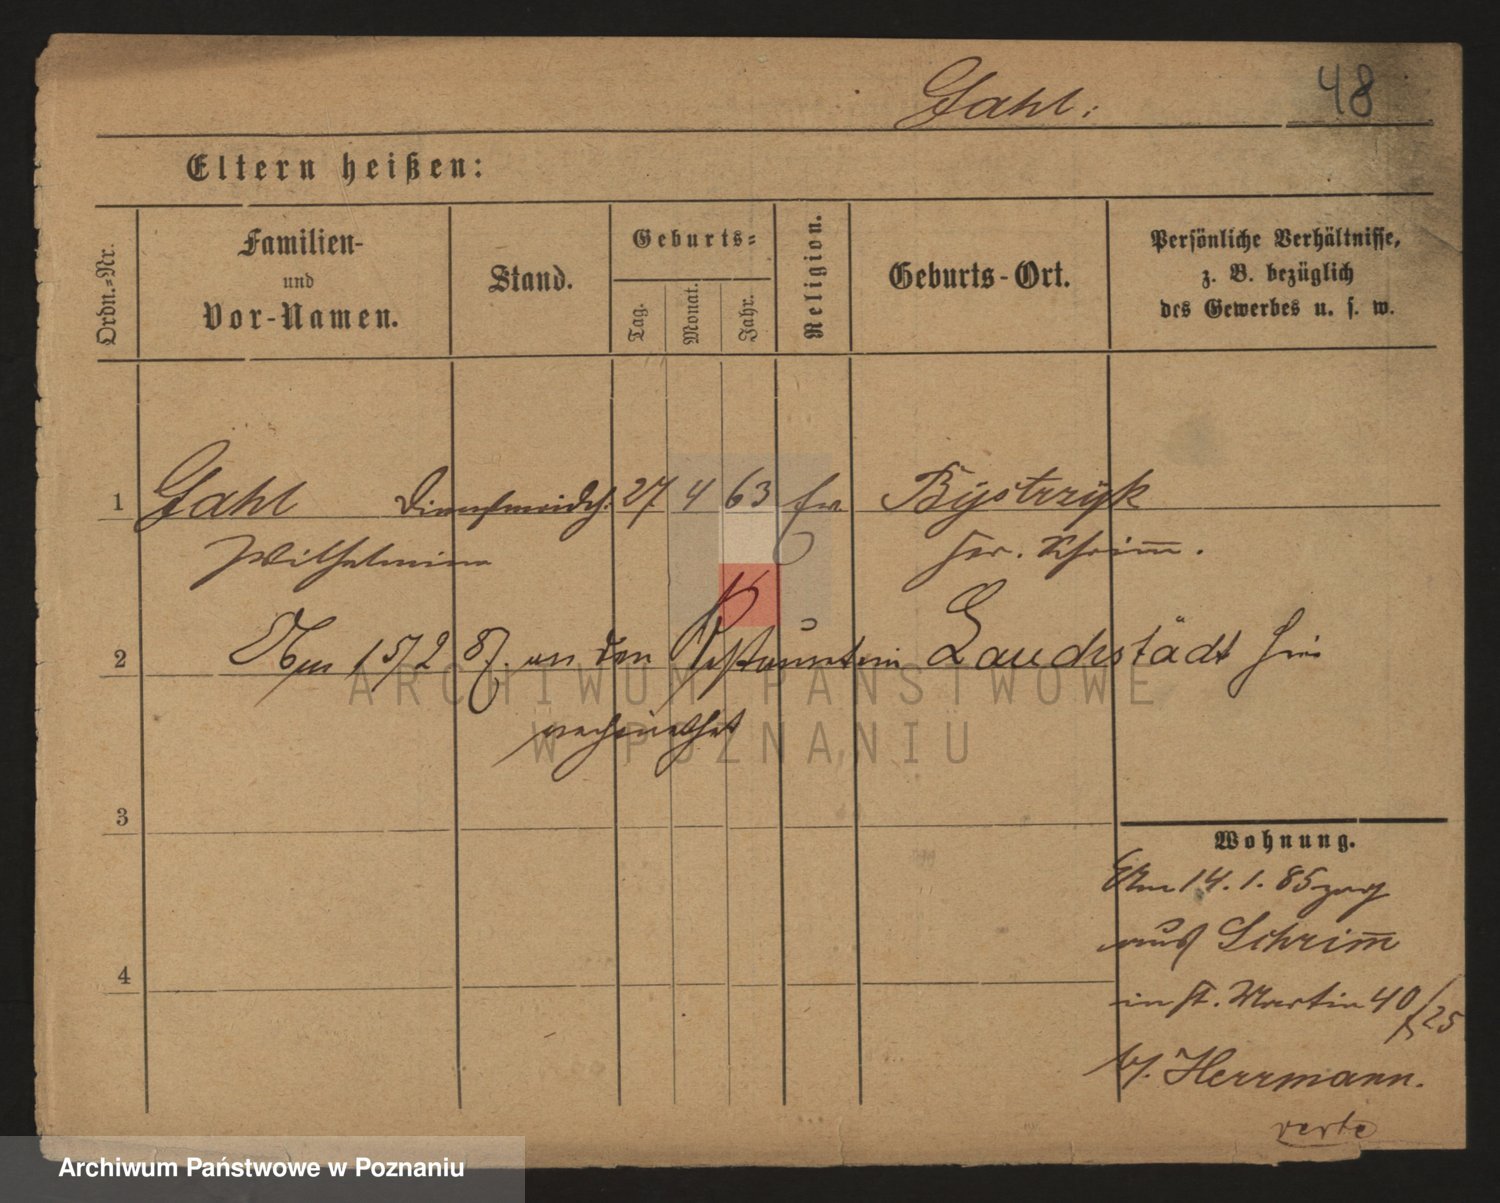 Gahl: 48
Eltern heißen:
Ordn.-Nr.
Familien-
und
Vor-Namen.
Stand.
Geburts-
Tag.
Monat.
Jahr.
Religion.
Geburts-Ort.
Persönliche Verhältnisse,
z. B. bezüglich
des Gewerbes u. s. w.
1 Gahl Dienstmädch. 27 4 63 Ev Bystrzyk
Wilhelmine Kr. Schrimm.
2 Am 15/2 87. an den Lauchstädt hier
verheirathet
ARCHIWUM PAŃSTWOWE
W POZNANIU
3
Wohnung.
Am 14. 1. 85 zuzg
aus Schrimm
4
in St. Martin 40/25
b/. Herrmann.
verte
Archiwum Państwowe w Poznaniu